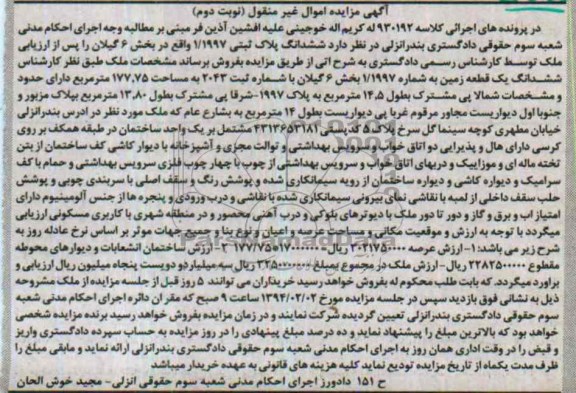 آگهی مزایده اموال غیر منقول (نوبت دوم)
در پرونده های اجرائی کلاسه ۹۳۰۱۹۲ له کریم اله خوجینی علیه افشین آذین فر مبنی بر مطالبه وجه اجرای احکام مدنی
شعبه سوم حقوقی دادگستری بندرانزلی در نظر دارد ششدانگ پلاک ثبتی ۱/۱۹۹۷ واقع در بخش ۶ گیلان را پس از ارزیابی
ملک توسط کارشناس رسمی دادگستری به شرح اتی از طریق مزایده بفروش برساند مشخصات ملک طبق نظر کارشناس
ششدانگ یک قطعه زمین به شماره ۱/۱۹۹۷ بخش ۶ گیلان با شماره ثبت ۲۰۴۳ به مساحت ۱۷۷,۷۵ مترمربع دارای حدود
و مشخصات شمالا پی مشترک بطول ۱۴,۵ مترمربع به پلاک ۱۹۹۷-شرقا پی مشترک بطول ۱۳,۸۰ مترمربع بپلاک مزبور و
جنوبا اول دیواریست مجاور مرقوم غربا پی دیواریست بطول ۱۴ مترمربع به بشارع عام که ملک مورد نظر در ادرس بندرانزلی
خیابان مطهری کوچه سینما گل سرخ پلاک ۵ کدپستی ۴۳۱۳۶۵۳۱۸۱ مشتمل بر یک واحد ساختمان در طبقه همکف بر روی
کرسی دارای هال و پذیرایی دو اتاق خواب سرویس بهداشتی و توالت مجزی و آشپزخانه با دیوار کاشی کف ساختمان از بتن
تخته ماله ای و موزاییک و دربهای اتاق خواب و سرویس بهداشتی از چوب با چهار چوب فلزی سرویس بهداشتی و حمام با کف
سرامیک و دیواره کاشی و دیواره ساختمان از رویه سیمانکاری شده و پوشش رنگ و سقف اصلی با سربندی چوبی و پوشش
حلب سقف داخلی از لمبه با نقاشی نمای بیرونی سیمانکاری شده با نقاشی و درب ورودی و پنجره ها از جنس آلومینیوم دارای
امتیاز اب و برق و گاز و دور تا دور ملک با دیوترهای بلوکی و درب آهنی محصور و در منطقه شهری با کاربری مسکونی ارزیابی
میگردد با توجه به ارزش و موقعیت مکانی و مساحت عرصه و اعیان و نوع بنا و جمیع جهات موثر بر اساس نرخ عادله روز به
شرح زیر می باشد: ۱- ارزش عرصه ریال- ارزش ساختمان انشعابات و دیوارهای محوطه
مقطوع ۲۲۸۲۵۰۰۰۰۰ ریال-ارزش ملک در مجموع بمبلغ ریال سه میلیارد و دویست پنجاه میلیون ریال ارزیابی و
براورد میگردد. که بابت طلب محکوم له بفروش خواهد رسید خریداران می توانند ۵ روز قبل از جلسه مزایده از ملک مشروحه
ذیل به نشانی فوق بازدید سپس در جلسه مزایده مورخ ۱۳۹۴/۰۲/۰۲ ساعت ۹ صبح که مقر ان دائره اجرای احکام مدنی شعبه
سوم حقوقی دادگستری بندرانزلی تعیین گردیده شرکت نمایند و در زمان مزایده بفروش خواهد رسید برنده مزایده شخصی
خواهد بود که بالاترین مبلغ را پیشنهاد نماید و ده درصد مبلغ پیشنهادی را در روز مزایده به حساب سپرده دادگستری واریز
و قبض را در وقت اداری همان روز به اجرای احکام مدنی شعبه سوم حقوقی دادگستری بندرانزلی ارائه نماید و مابقی مبلغ را
ظرف مدت یکماه از تاریخ مزایده تودیع نماید کلیه هزینه های قانونی به عهده خریدار میباشد
ح ۱۵۱ دادورز اجرای احکام مدنی شعبه سوم حقوقی انزلی- مجید خوش الحان